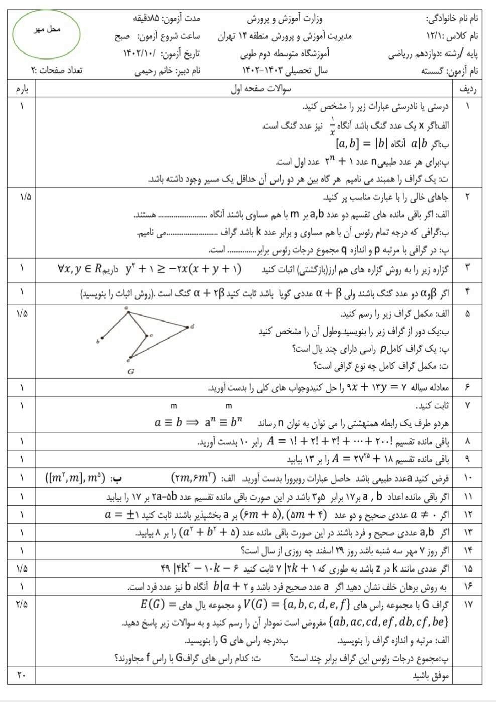 نام نام خانوادگی:
وزارت آموزش و پرورش
مدت آزمون: ۸۵دقیقه
نام کلاس :۱۲/۱
مدیریت آموزش و پرورش منطقه ۱۴ تهران
ساعت شروع آزمون: صبح
پایه /رشته :دوازدهم ررریاضی
آموزشگاه متوسطه دوم طوبی
تاریخ آزمون: /۱۴۰۲/۱۰
نام آزمون: گسسته
سال تحصیلی ۱۴۰۳-۱۴۰۲
نام دبیر: خانم رحیمی
تعداد صفحات :۲
محل مهر
ردیف
سوالات صفحه اول
بارم
۱
درستی یا نادرستی عبارات زیر را مشخص کنید.
۱
الف:اگر x یک عدد گنگ باشد آنگاه ۱/x نیز عدد گنگ است.
ب:اگر a|b آنگاه [a,b] = |b|
پ:برای هر عدد طبیعی n عدد ۲ⁿ + ۱ عدد اول است.
ت: یک گراف را همبند می نامیم هر گاه بین هر دو راس آن حداقل یک مسیر وجود داشته باشد.
۲
جاهای خالی را با عبارت مناسب پر کنید.
۱/۵
الف: اگر باقی مانده های تقسیم دو عدد a,b بر m با هم مساوی باشند آنگاه .................... هستند.
ب:گرافی که درجه تمام رئوس آن با هم مساوی و برابر عدد k باشد گراف ....................می نامیم.
پ: در گرافی با مرتبه p و اندازه q مجموع درجات رئوس برابر............. است.
۳
گزاره زیر را به روش گزاره های هم ارز(بازگشتی) اثبات کنید ∀x, y ∈ R داریم y² + ۱ ≥ −۲x(x + y + ۱)
۱
۴
اگر α,β دو عدد گنگ باشند ولی α + β عددی گویا باشد ثابت کنید α + ۲β گنگ است .(روش اثبات را بنویسید)
۱
۵
الف: مکمل گراف زیر را رسم کنید.
۱/۵
ب:یک دور از گراف زیر را بنویسید.وطول آن را مشخص کنید
پ: یک گراف کامل p راسی دارای چند یال است؟
ت: مکمل گراف کامل چه نوع گرافی است؟
a
b
c
d
e
G
۶
معادله سیاله ۹x + ۱۳y = ۷ را حل کنیدوجواب های کلی را بدست آورید.
۱
۷
ثابت کنید.
۱
هردو طرف یک رابطه همنهشتی را می توان به توان n رساند a ≡ b ⟹ aⁿ ≡ bⁿ
m m
۸
باقی مانده تقسیم A = ۱! + ۲! + ۳! + ⋯ + ۲۰۰! رابر ۱۰ بدست آورید.
۱
۹
باقی مانده تقسیم A = ۲۷²⁵ + ۱۸ را بر ۱۳ بیابید
۱
۱۰
فرض کنید mعدد طبیعی باشد حاصل عبارات روبرورا بدست آورید. الف: (۲m, ۶m³) ب: ([m², m], m⁵)
۱
۱۱
اگر باقی مانده اعداد a , b بر۱۷ برابر ۵و۳ باشد در این صورت باقی مانده تقسیم عدد ۲a-۵b بر ۱۷ را بیابید
۱
۱۲
اگر a ≠ ۰ عددی صحیح و دو عدد (۵m + ۴), (۶m + ۵) بر a بخشپذیر باشند ثابت کنید a = ±۱
۱
۱۳
اگر a,b عددی صحیح و فرد باشند در این صورت باقی مانده عدد (a² + b² + ۵) را بر ۸ بیابید.
۱
۱۴
اگر روز ۷ مهر سه شنبه باشد روز ۲۹ اسفند چه روزی از سال است؟
۱
۱۵
اگر عددی مانند k در z باشد به طوری که ۷ | ۲k + ۱ ثابت کنید ۴۹ | ۴k² − ۱۰k − ۶
۱/۵
۱۶
به روش برهان خلف نشان دهید اگر a عدد صحیح فرد باشد و b|a + ۲ آنگاه b نیز عدد فرد است.
۱
۱۷
گراف G با مجموعه راس های V(G) = {a, b, c, d, e, f} و مجموعه یال های E(G) =
۲/۵
{ab, ac, cd, ef, db, cf, be} مفروض است نمودار آن را رسم کنید و به سوالات زیر پاسخ دهید.
الف: مرتبه و اندازه گراف را بنویسید. ب:درجه راس های G را بنویسید.
پ:مجموع درجات رئوس این گراف برابر چند است؟ ت: کدام راس های گرافG با راس f مجاورند؟
موفق باشید
۲۰